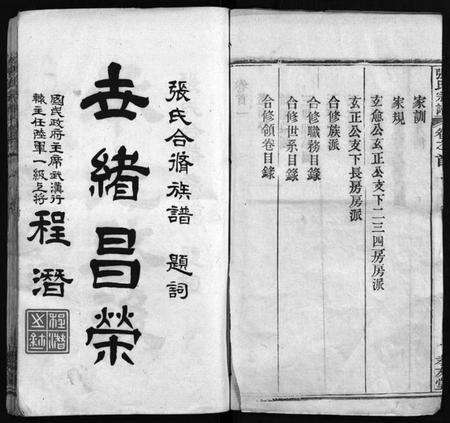 家訓
家規
玄愈公玄正公支下二三四房房派
玄正公支下長房房派
合修族派
合修職務目錄
合修世系目錄
合修領卷目錄
張氏合修族譜 題詞
世緒昌榮
國民政府主席武漢行
轅主任陸軍一級上將
程潛